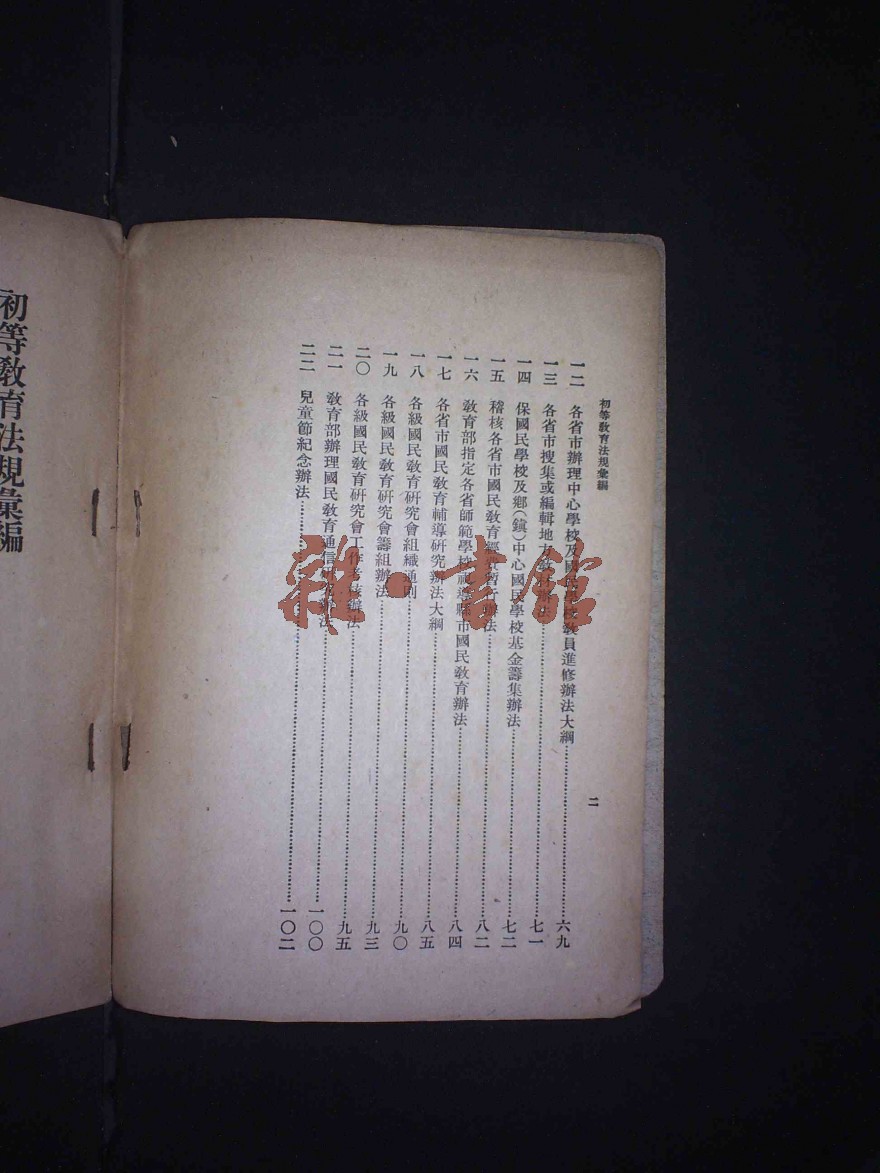 初等教育法規彙編
二
一二　各省市辦理中心學校及國民學校教員進修辦法大綱……六九
一三　各省市搜集或編輯地方教材辦法……七一
一四　保國民學校及鄉(鎭)中心國民學校基金籌集辦法……七二
一五　稽核各省市國民教育經費暫行辦法……八二
一六　教育部指定各省師範學校視導縣市國民教育辦法……八四
一七　各省市國民教育輔導研究辦法大綱……八五
一八　各級國民教育硏究會組織通則……九〇
一九　各級國民教育硏究會籌組辦法……九三
二〇　各級國民教育硏究會工作考核辦法……九五
二一　教育部辦理國民教育通信硏究辦法……一〇〇
二二　兒童節紀念辦法……一〇二
初等教育法規彙編
雜·書館